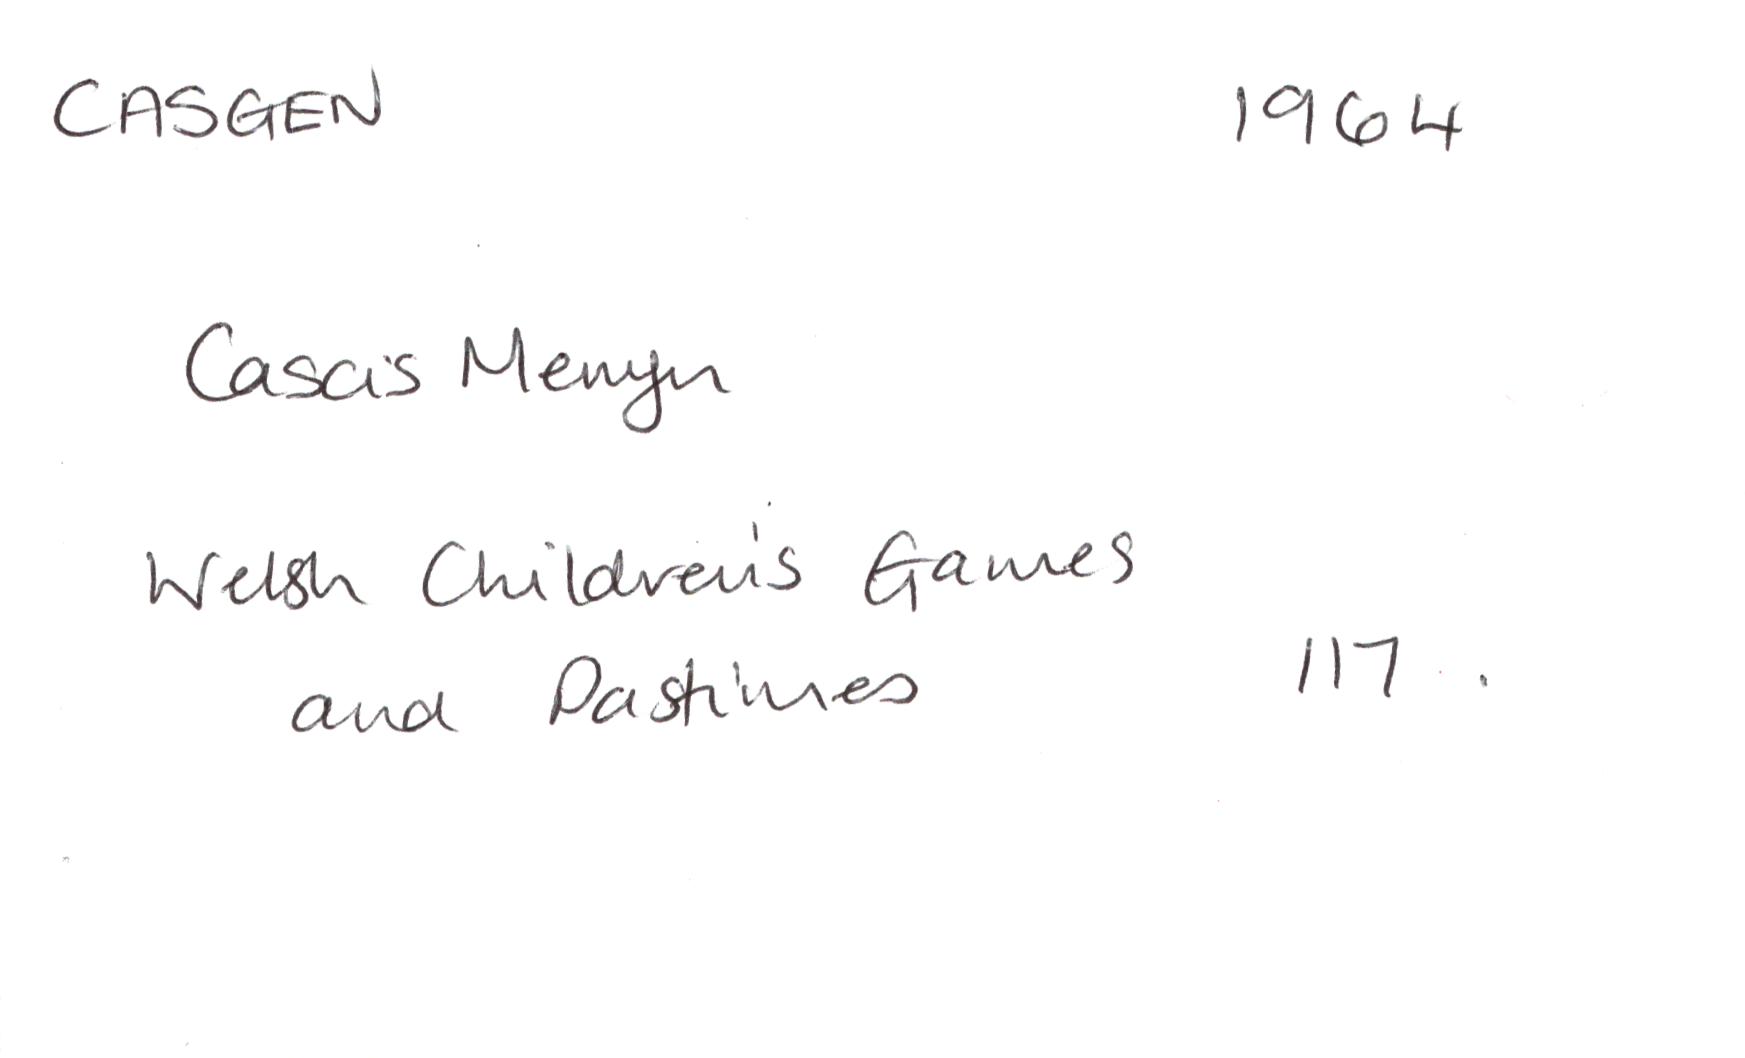 CASGEN 1964
Cascis Menyn
Welsh Children's Games
and Pastimes 117.